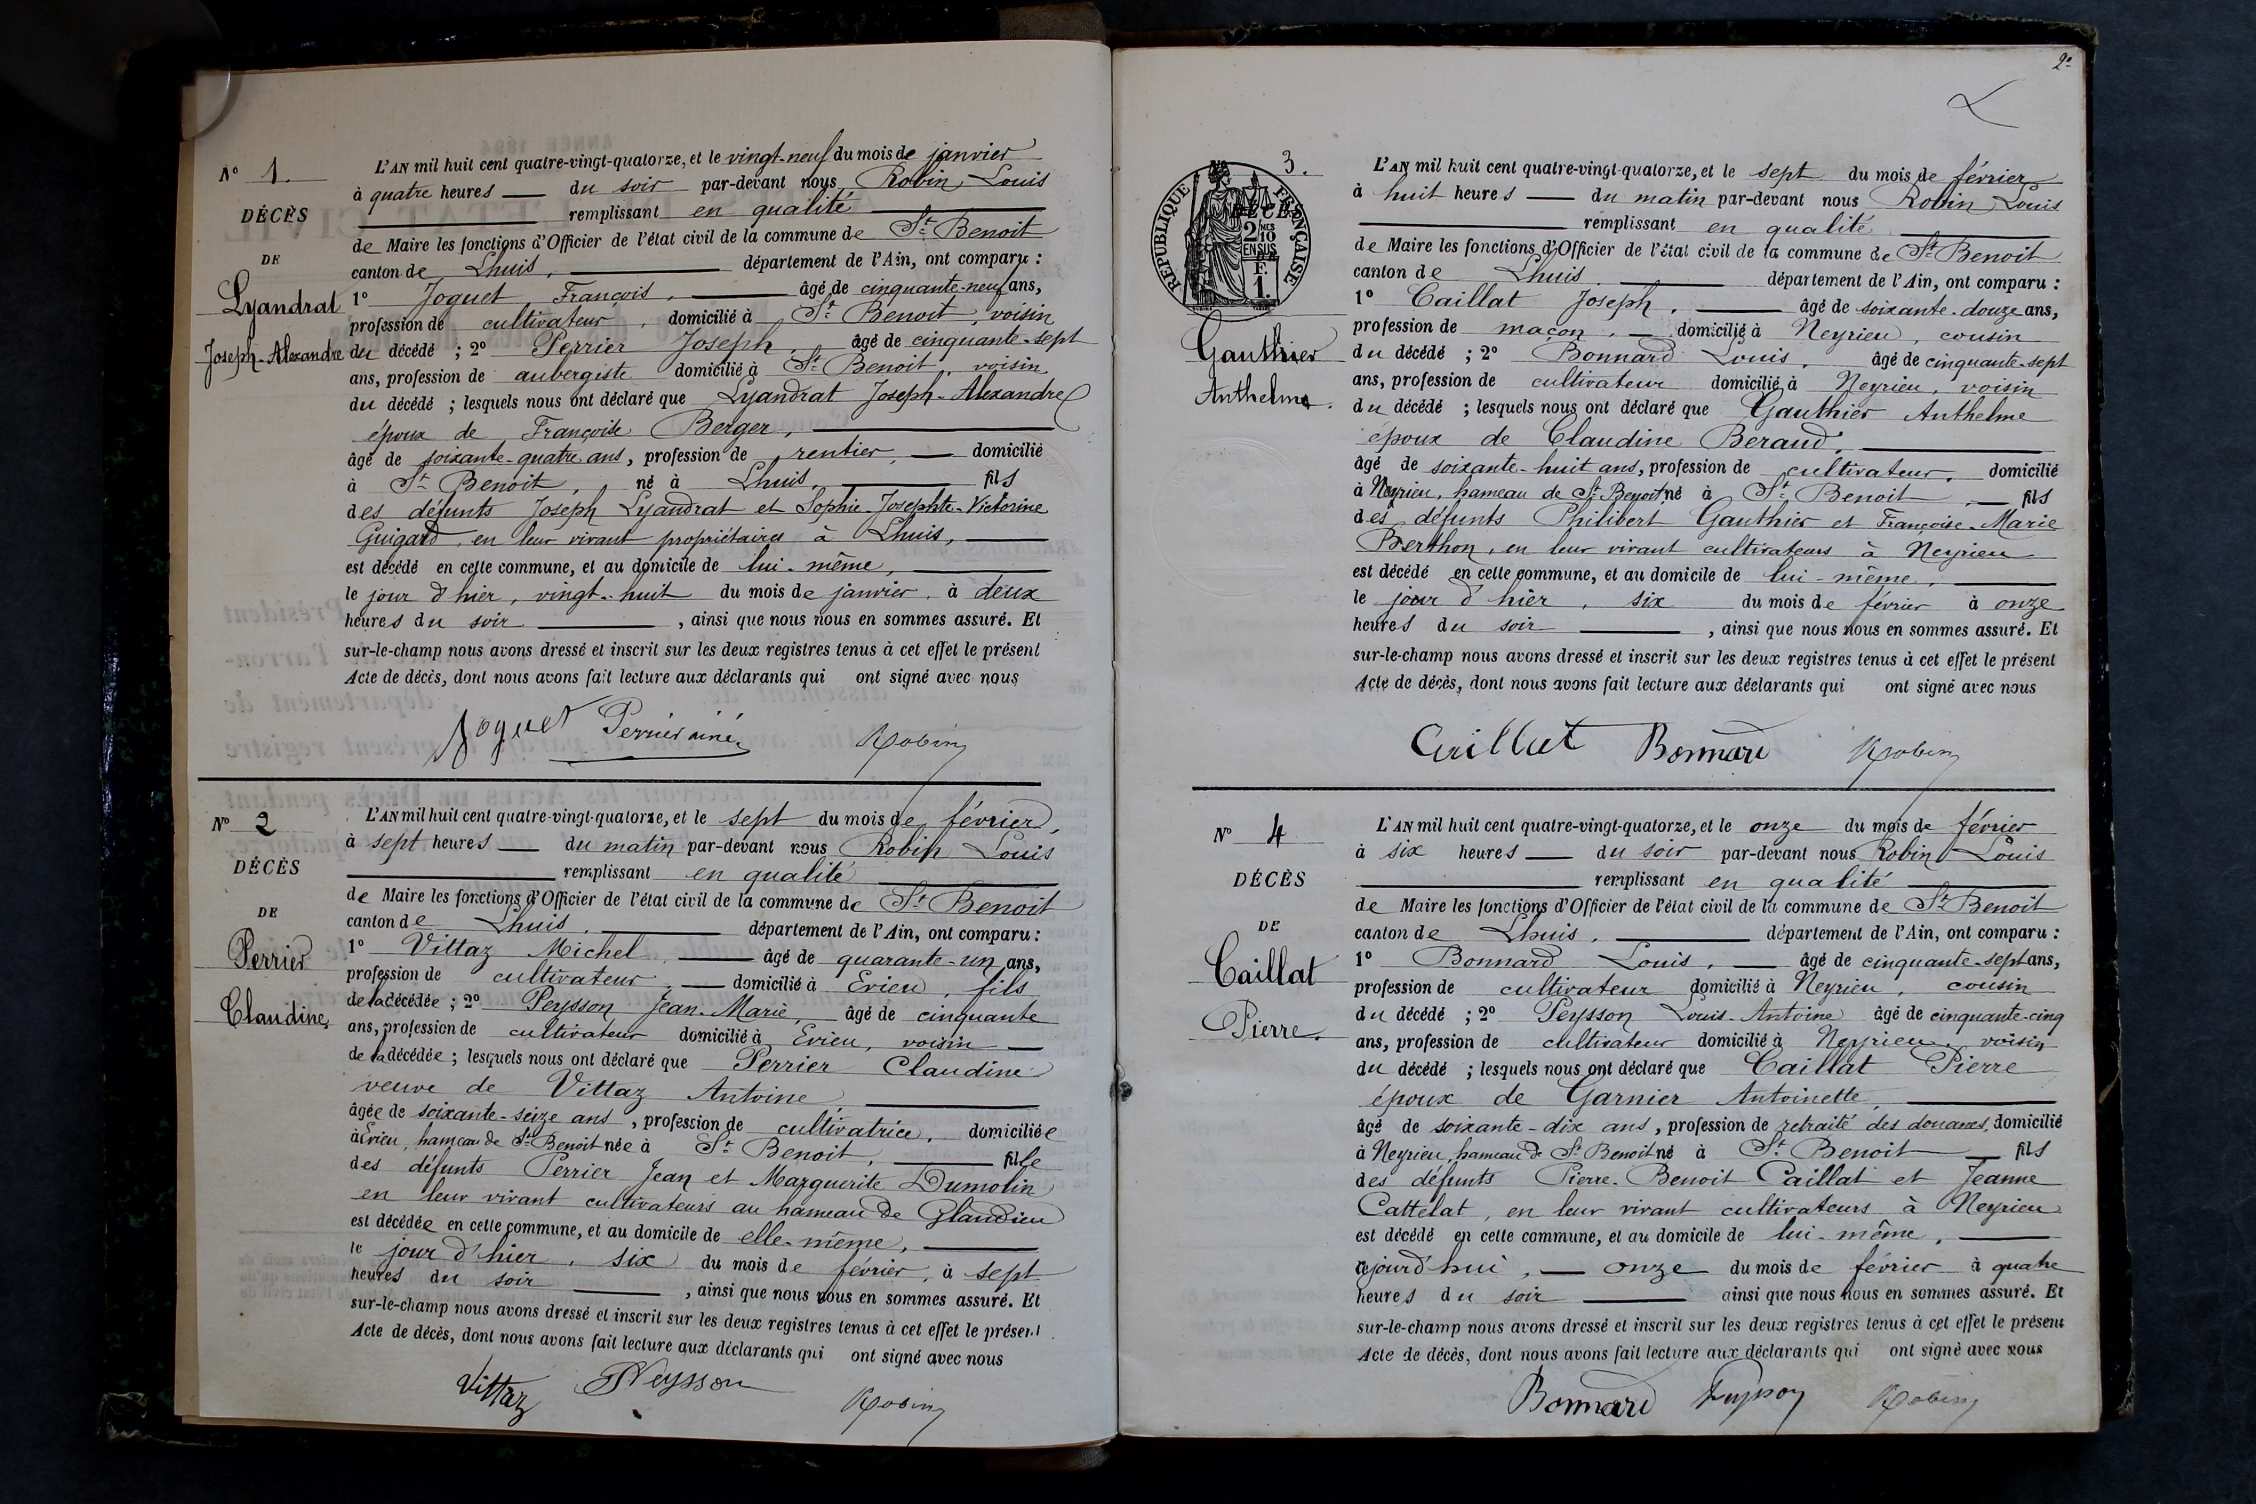 N° 1.
DÉCÈS
DE
Lyandrat
Joseph-Alexandre
L'AN mil huit cent quatre-vingt-quatorze, et le vingt-neuf du mois de janvier
à quatre heures du soir par-devant nous Robin Louis
remplissant en qualité
de Maire les fonctions d'Officier de l'état civil de la commune de St Benoit
canton de Lhuis, département de l'Ain, ont comparu :
1° Joguet François, âgé de cinquante-neuf ans,
profession de cultivateur, domicilié à St Benoit, voisin
du décédé ; 2° Perrier Joseph, âgé de cinquante-sept
ans, profession de aubergiste domicilié à St Benoit, voisin
du décédé ; lesquels nous ont déclaré que Lyandrat Joseph-Alexandre
époux de Françoise Berger,
âgé de soixante-quatre ans, profession de rentier, domicilié
à St Benoit, né à Lhuis, fils
des défunts Joseph Lyandrat et Sophie-Josephte-Victorine
Guigard, en leur vivant propriétaires à Lhuis,
est décédé en cette commune, et au domicile de lui-même,
le jour d'hier, vingt-huit du mois de janvier, à deux
heures du soir, ainsi que nous nous en sommes assuré. Et
sur-le-champ nous avons dressé et inscrit sur les deux registres tenus à cet effet le présent
Acte de décès, dont nous avons fait lecture aux déclarants qui ont signé avec nous
Joguet Perrier ainé Robin
N° 2
DÉCÈS
DE
Perrier
Claudine
L'AN mil huit cent quatre-vingt-quatorze, et le sept du mois de février,
à sept heures du matin par-devant nous Robin Louis
remplissant en qualité
de Maire les fonctions d'Officier de l'état civil de la commune de St Benoit
canton de Lhuis, département de l'Ain, ont comparu :
1° Vittaz Michel, âgé de quarante-un ans,
profession de cultivateur, domicilié à Evieu, fils
de la décédée ; 2° Peysson Jean-Marie, âgé de cinquante
ans, profession de cultivateur domicilié à Evieu, voisin
de la décédée ; lesquels nous ont déclaré que Perrier Claudine
veuve de Vittaz Antoine,
âgée de soixante-seize ans, profession de cultivatrice, domiciliée
à Evieu, hameau de St Benoit née à St Benoit, fille
des défunts Perrier Jean et Marguerite Dumolin
en leur vivant cultivateurs au hameau de Glandieu
est décédée en cette commune, et au domicile de elle-même,
le jour d'hier, six du mois de février, à sept
heures du soir, ainsi que nous nous en sommes assuré. Et
sur-le-champ nous avons dressé et inscrit sur les deux registres tenus à cet effet le présent
Acte de décès, dont nous avons fait lecture aux déclarants qui ont signé avec nous
Vittaz Peysson Robin
2e
3.
RÉPUBLIQUE FRANÇAISE
DÉCÈ
2 10 MES
EN SUS
F.
1.
Gauthier
Anthelme.
L'AN mil huit cent quatre-vingt-quatorze, et le sept du mois de février
à huit heures du matin par-devant nous Robin Louis
remplissant en qualité
de Maire les fonctions d'Officier de l'état civil de la commune de St Benoit
canton de Lhuis département de l'Ain, ont comparu :
1° Caillat Joseph, âgé de soixante-douze ans,
profession de maçon, domicilié à Neyrieu, cousin
du décédé ; 2° Bonnard Louis, âgé de cinquante-sept
ans, profession de cultivateur domicilié à Neyrieu, voisin
du décédé ; lesquels nous ont déclaré que Gauthier Anthelme
époux de Claudine Beraud,
âgé de soixante-huit ans, profession de cultivateur, domicilié
à Neyrieu, hameau de St Benoit né à St Benoit, fils
des défunts Philibert Gauthier et Françoise-Marie
Berthon, en leur vivant cultivateurs à Neyrieu
est décédé en cette commune, et au domicile de lui-même,
le jour d'hier, six du mois de février à onze
heures du soir, ainsi que nous nous en sommes assuré. Et
sur-le-champ nous avons dressé et inscrit sur les deux registres tenus à cet effet le présent
Acte de décès, dont nous avons fait lecture aux déclarants qui ont signé avec nous
Caillat Bonnard Robin
N° 4
DÉCÈS
DE
Caillat
Pierre.
L'AN mil huit cent quatre-vingt-quatorze, et le onze du mois de février
à six heures du soir par-devant nous Robin Louis
remplissant en qualité
de Maire les fonctions d'Officier de l'état civil de la commune de St Benoit
canton de Lhuis, département de l'Ain, ont comparu :
1° Bonnard Louis, âgé de cinquante-sept ans,
profession de cultivateur domicilié à Neyrieu, cousin
du décédé ; 2° Peysson Louis-Antoine âgé de cinquante-cinq
ans, profession de cultivateur domicilié à Neyrieu, voisin
du décédé ; lesquels nous ont déclaré que Caillat Pierre
époux de Garnier Antoinette,
âgé de soixante-dix ans, profession de retraité des douanes, domicilié
à Neyrieu, hameau de St Benoit né à St Benoit fils
des défunts Pierre-Benoit Caillat et Jeanne
Cattelat, en leur vivant cultivateurs à Neyrieu
est décédé en cette commune, et au domicile de lui-même,
cejourd'hui, onze du mois de février à quatre
heures du soir ainsi que nous nous en sommes assuré. Et
sur-le-champ nous avons dressé et inscrit sur les deux registres tenus à cet effet le présent
Acte de décès, dont nous avons fait lecture aux déclarants qui ont signé avec nous
Bonnard Peysson Robin